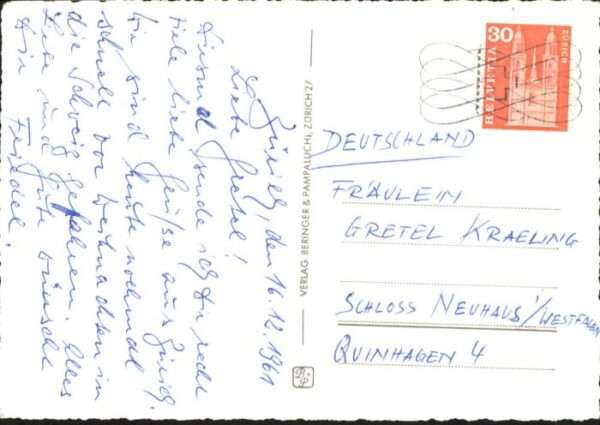 Zürich, den 16.12.1961
Liebe Gretel!
Diesmal sende ich Dir recht
viele liebe Grüße aus Zürich.
Wir sind heute nochmal
schnell vor Weihnachten in
die Schweiz gefahren. Alles
Liebe und Gute wünscht
Dir Friedel.
VERLAG BERINGER & PAMPALUCHI, ZÜRICH 27
30
HELVETIA
ZÜRICH
DEUTSCHLAND
FRÄULEIN
GRETEL KRAELING
SCHLOSS NEUHAUS i/WESTFALEN
QUINHAGEN 4